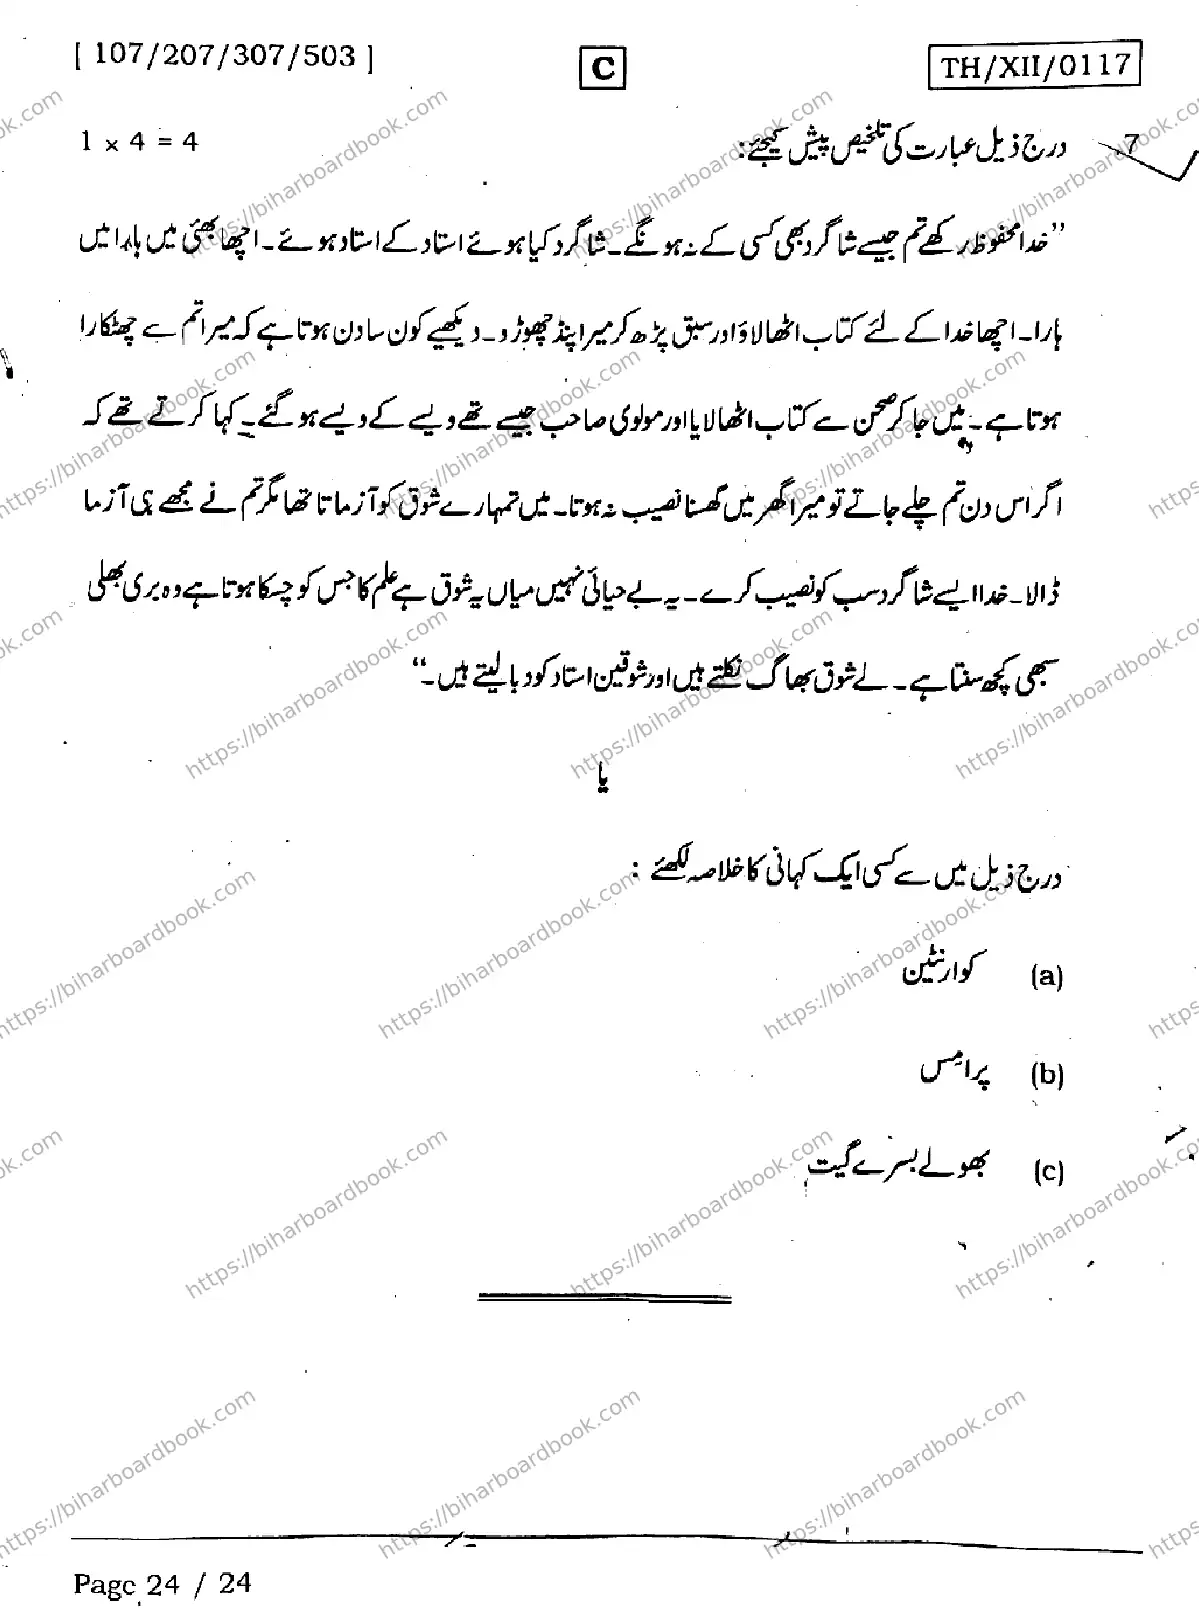 [ 107/207/307/503 ] C TH/XII/0117
7 درج ذیل عبارت کی تلخیص پیش کیجئے: 1 × 4 = 4
”خدا محفوظ رکھے تم جیسے شاگرد بھی کسی کے نہ ہونگے۔ شاگرد کیا ہوئے استاد کے استاد ہوئے۔ اچھا بھئی میں ہارا میں
ہارا۔ اچھا خدا کے لئے کتاب اٹھا لاؤ اور سبق پڑھ کر میرا پنڈ چھوڑو۔ دیکھیے کون سا دن ہوتا ہے کہ میرا تم سے چھٹکارا
ہوتا ہے۔ میں جا کر صحن سے کتاب اٹھا لایا اور مولوی صاحب جیسے تھے ویسے کے ویسے ہو گئے۔ کہا کرتے تھے کہ
اگر اس دن تم چلے جاتے تو میرا گھر میں گھسنا نصیب نہ ہوتا۔ میں تمہارے شوق کو آزماتا تھا مگر تم نے مجھے ہی آزما
ڈالا۔ خدا ایسے شاگرد سب کو نصیب کرے۔ یہ بے حیائی نہیں میاں یہ شوق ہے علم کا جس کو چسکا ہوتا ہے وہ بری بھلی
سبھی کچھ سنتا ہے۔ بے شوق بھاگ نکلتے ہیں اور شوقین استاد کو دبا لیتے ہیں۔“
یا
درج ذیل میں سے کسی ایک کہانی کا خلاصہ لکھئے :
(a) کوارنٹین
(b) پرامس
(c) بھولے بسرے گیت
Page 24 / 24
https://biharboardbook.com